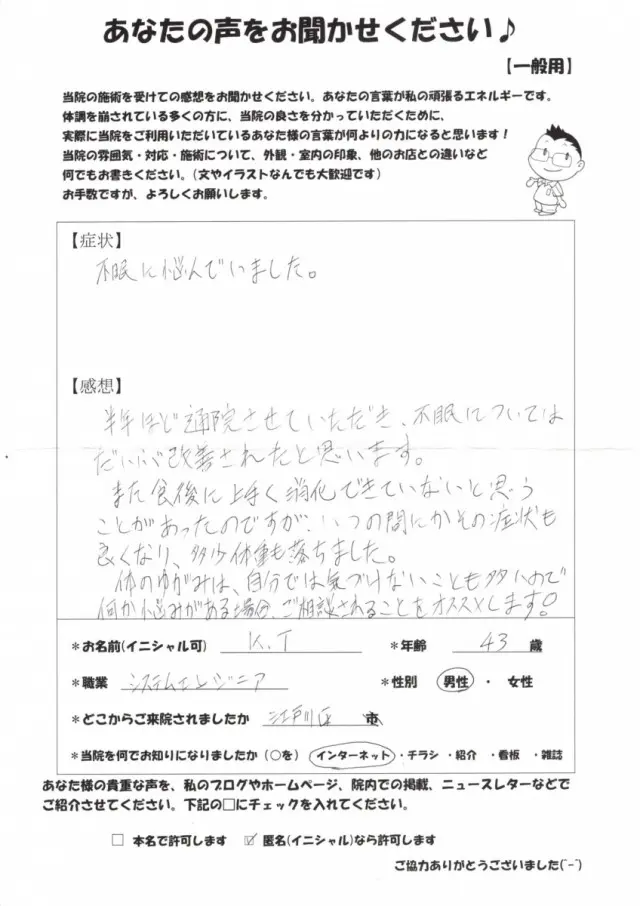 あなたの声をお聞かせください♪
【一般用】
当院の施術を受けての感想をお聞かせください。あなたの言葉が私の頑張るエネルギーです。
体調を崩されている多くの方に、当院の良さを分かっていただくために、
実際に当院をご利用いただいているあなた様の言葉が何よりの力になると思います!
当院の雰囲気・対応・施術について、外観・室内の印象、他のお店との違いなど
何でもお書きください。(文やイラストなんでも大歓迎です)
お手数ですが、よろしくお願いします。
【症状】
不眠に悩んでいました。
【感想】
半年ほど通院させていただき、不眠については
だいぶ改善されたと思います。
また食後に上手く消化できていないと思う
ことがあったのですが、いつの間にかその症状も
良くなり、多少体重も落ちました。
体のゆがみは、自分では気づけないことも多いので
何か悩みがある場合、ご相談されることをオススメします!
*お名前(イニシャル可) K.T *年齢 43 歳
*職業 システムエンジニア *性別 男性 ・ 女性
*どこからご来院されましたか 江戸川区 市
*当院を何でお知りになりましたか(○を) インターネット ・チラシ ・紹介 ・看板 ・雑誌
あなた様の貴重な声を、私のブログやホームページ、院内での掲載、ニュースレターなどで
ご紹介させてください。下記の□にチェックを入れてください。
□ 本名で許可します ☑ 匿名(イニシャル)なら許可します
ご協力ありがとうございました(^-^)